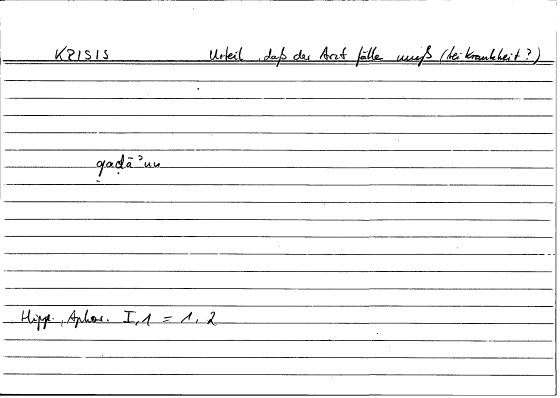 KRISIS Urteil, daß der Arzt fälle muß (bei Krankheit?)
qaḍāʾun
Hipp., Aphor. I,1 = 1,2